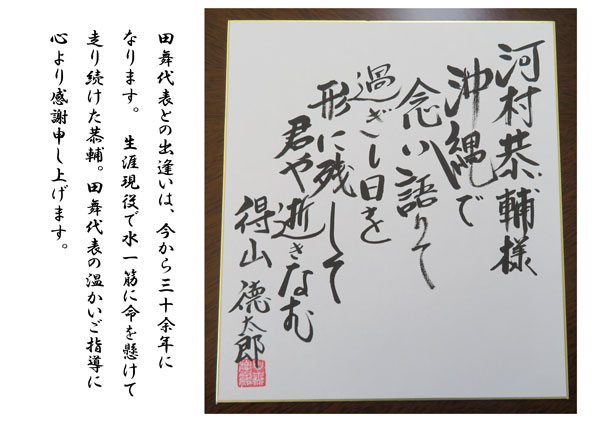 河村恭輔様
沖縄で
念い語りて
過ぎし日を
形に残して
君や逝きなむ
得山 徳太郎
田舞代表との出逢いは、今から三十余年に
なります。 生涯現役で水一筋に命を懸けて
走り続けた恭輔。田舞代表の温かいご指導に
心より感謝申し上げます。